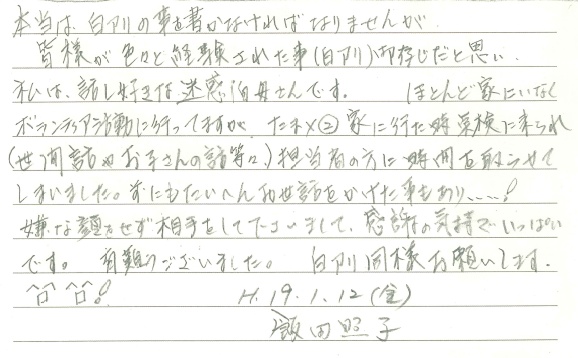 本当は、白アリの事を書かなければなりませんが、
皆様が色々と経験された事(白アリ)御存じだと思い、
私は、話し好きな迷惑伯母さんです。 ほとんど家にいなく
ボランティア活動に行ってますが、たまx②家に行た時点検に来られ
(世間話やお子さんの話等々)担当者の方に時間を取らせて
しまいました。すにもたいへんお世話をかけた事もあり、…!
嫌な顔もせず相手をして下さいまして、感謝の気持でいっぱい
です。 有難うございました。 白アリ同様お願いします。
H.19.1.12(金)
飯田照子